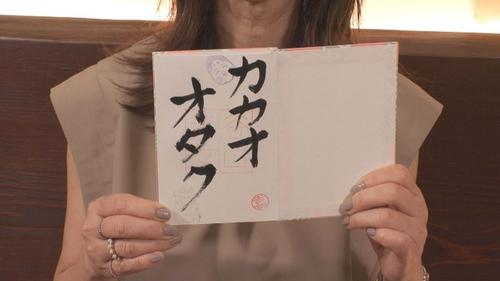 カカオ
オタク